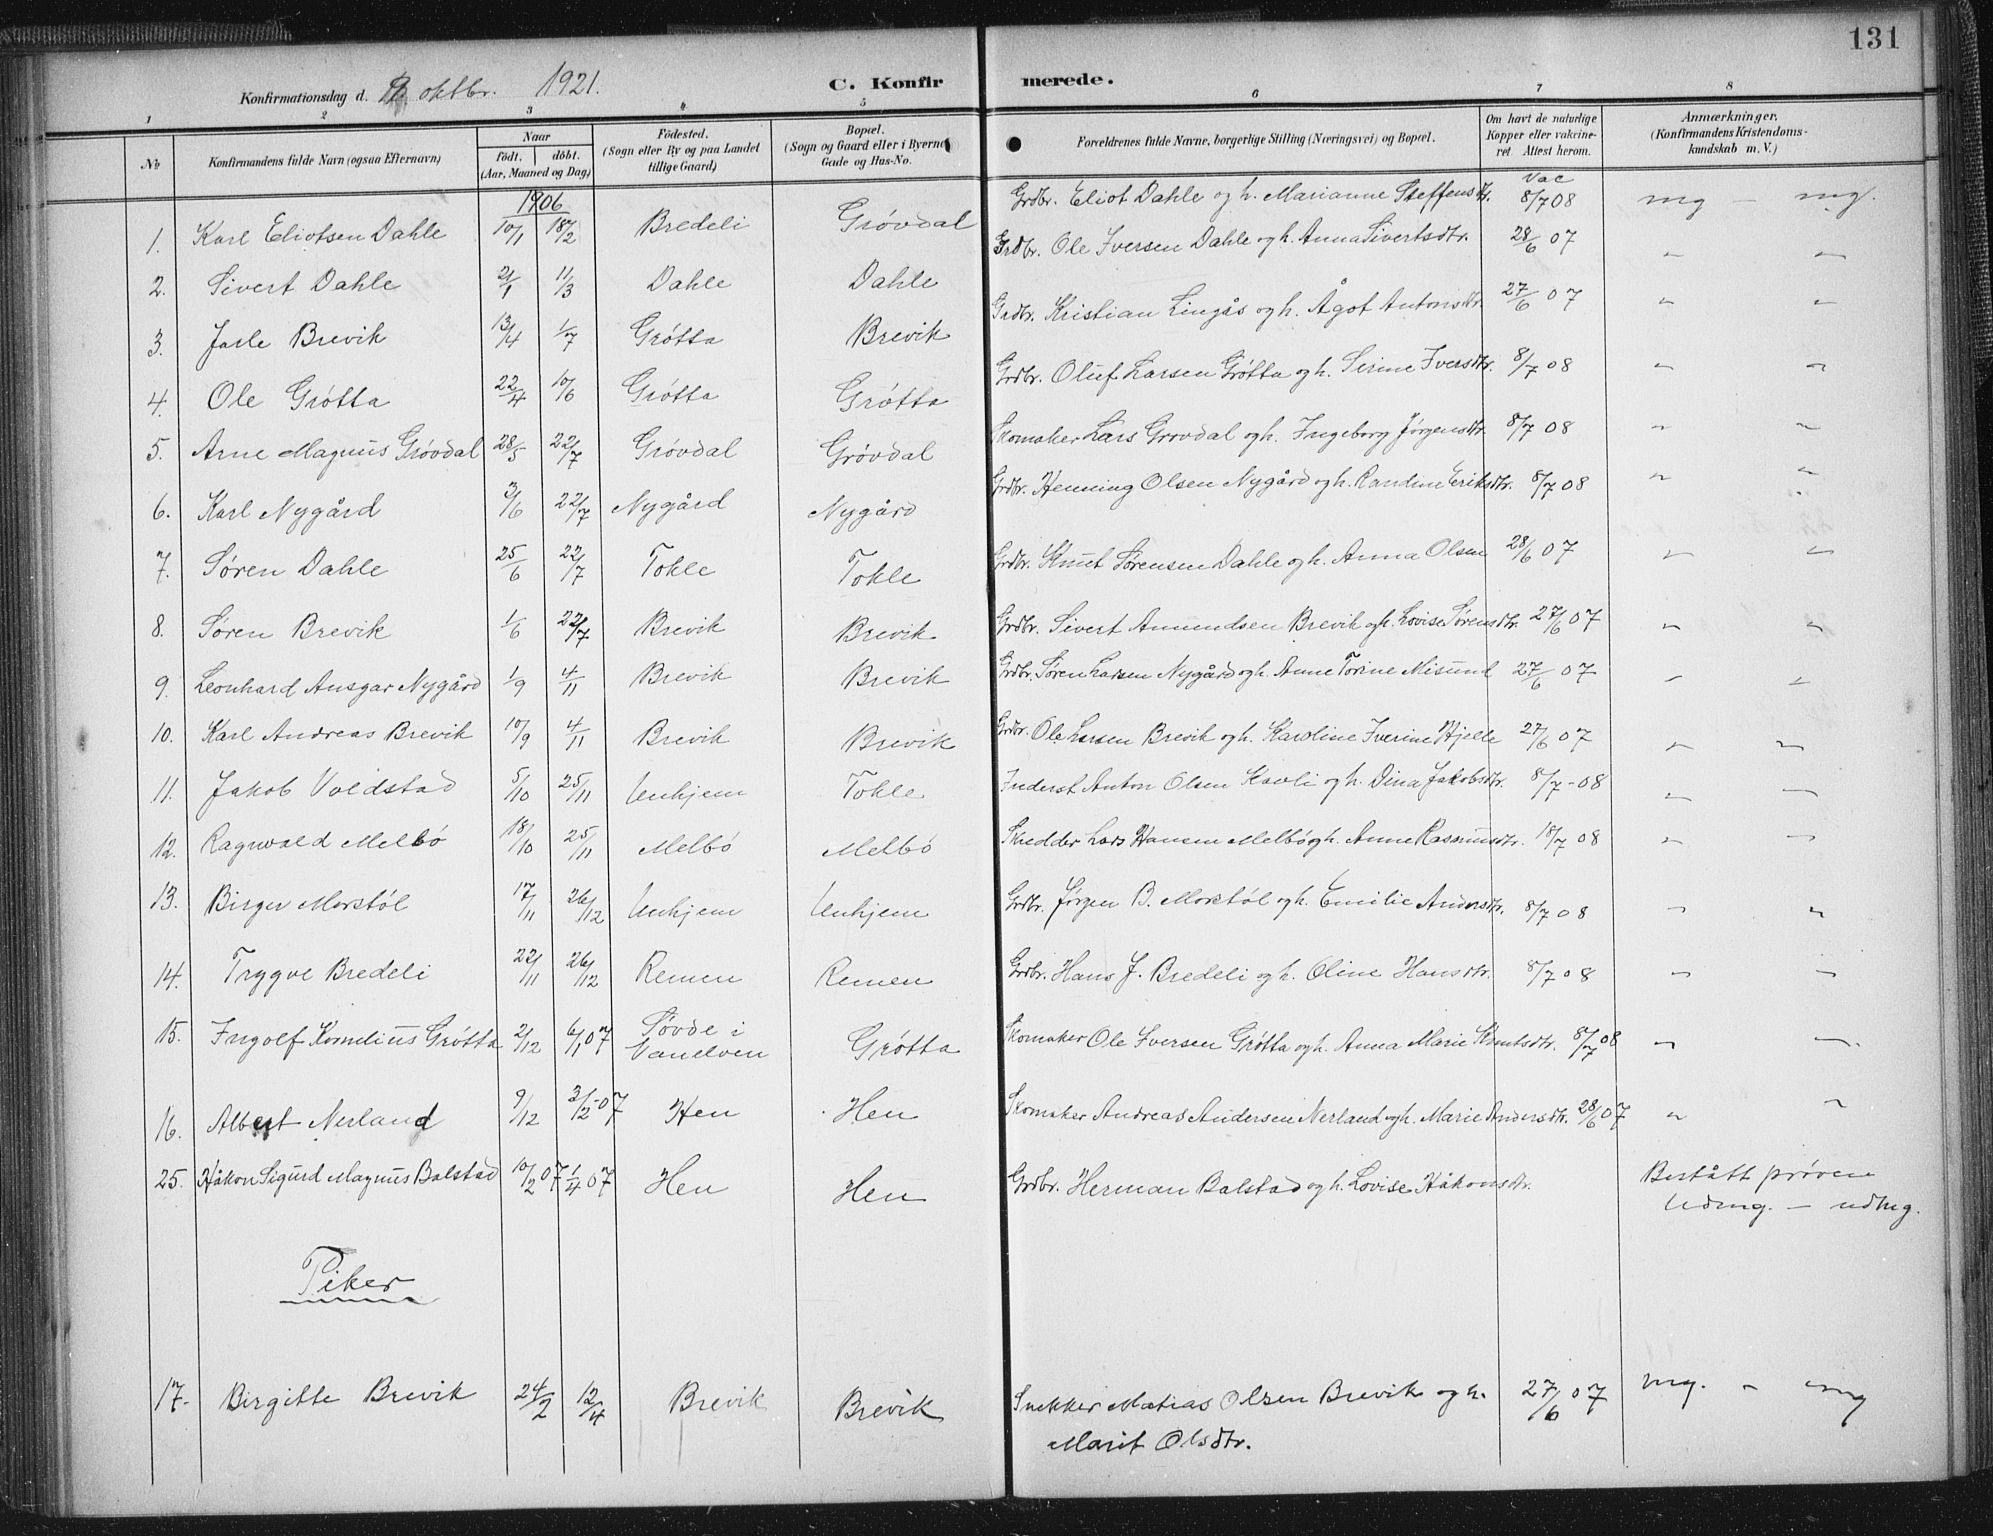 131
Konfirmationsdag d. oktbr. 1921. C. Konfirmerede.
1 2 3 4 5 6 7 8
No Konfirmandens fulde Navn (ogsaa Efternavn) Naar født. døbt. (Aar, Maaned og Dag) Fødested. (Sogn eller By og paa Landet tillige Gaard) Bopæl. (Sogn og Gaard eller i Byerne Gade og Hus-No. Forældrenes fulde Navne, borgerlige Stilling (Næringsvei) og Bopæl. Om havt de naturlige Kopper eller vakcineret. Attest herom. Anmærkninger. (Konfirmandens Kristendomskundskab m. V.)
1906 Vac
1. Karl Eliotsen Dahle 10/1 18/2 Bredeli Grøvdal Grdbr. Eliot Dahle og h. Marianne Steffensdtr. 8/7 08 mg – mg.
2. Sivert Dahle 21/1 11/3 Dahle Dahle Grdbr. Ole Iversen Dahle og h. Anna Sivertsdtr. 28/6 07 " "
3. Jarle Brevik 13/4 1/7 Grøtta Brevik Grdbr. Kristian Lingås og h. Ågot Antonsdtr. 27/6 07 " "
4. Ole Grøtta 22/4 10/6 Grøtta Grøtta Grdbr. Oluf Larsen Grøtta og h. Sirine Iversdtr. 8/7 08 " "
5. Arne Magnus Grøvdal 28/5 22/7 Grøvdal Grøvdal Skomaker Lars Grøvdal og h. Ingeborg Jørgensdtr. 8/7 08 " "
6. Karl Nygård 3/6 22/7 Nygård Nygård Grdbr. Henning Olsen Nygård og h. Randine Eriksdtr. 8/7 08 " "
7. Søren Dahle 25/6 22/7 Tokle Tokle Grdbr. Knut Sørensen Dahle og h. Anna Olsen 28/6 07 " "
8. Søren Brevik 1/6 22/7 Brevik Brevik Grdbr. Sivert Amundsen Brevik og h. Lovise Sørensdtr. 27/6 07 " "
9. Leonhard Ansgar Nygård 1/9 4/11 Brevik Brevik Grdbr. Søren Larsen Nygård og h. Anne Torine Misund 27/6 07 " "
10. Karl Andreas Brevik 10/9 4/11 Brevik Brevik Grdbr. Ole Larsen Brevik og h. Karoline Iverine Hjelle 27/6 07 " "
11. Jakob Voldstad 5/10 25/11 Unhjem Tokle Inderst Anton Olsen Kavli og h. Dina Jakobsdtr. 8/7 - 08 " "
12. Ragnvald Melbø 18/10 25/11 Melbø Melbø Skredder Lars Hansen Melbø og h. Anne Rasmusdtr. 18/7 08 " "
13. Birger Morstøl 17/11 26/12 Unhjem Unhjem Grdbr. Jørgen B. Morstøl og h. Emilie Andersdtr. 8/7 08 " "
14. Trygve Bredeli 22/11 26/12 Remen Remen Grdbr. Hans J. Bredeli og h. Oline Hansdtr. 8/7 08 " "
15. Ingolf Kornelius Grøtta 2/12 6/1 07 Søvde i Vanelven Grøtta Skomaker Ole Iversen Grøtta og h. Anna Marie Knutsdtr. 8/7 08 " "
16. Albert Nerland 9/12 3/2 - 07 Hen Hen Skomaker Andreas Andersen Nerland og h. Marie Andersdtr. 28/6 07 " "
25. Håkon Sigurd Magnus Balstad 10/2 07 1/4 07 Hen Hen Grdbr. Herman Balstad og h. Lovise Håkonsdtr. Bestått prøven
Udmg. – udmg.
Piker
17. Birgitte Brevik 24/2 12/4 Brevik Brevik Snekker Matias Olsen Brevik og h. 27/6 07 mg. – mg
Marit Olsdtr.